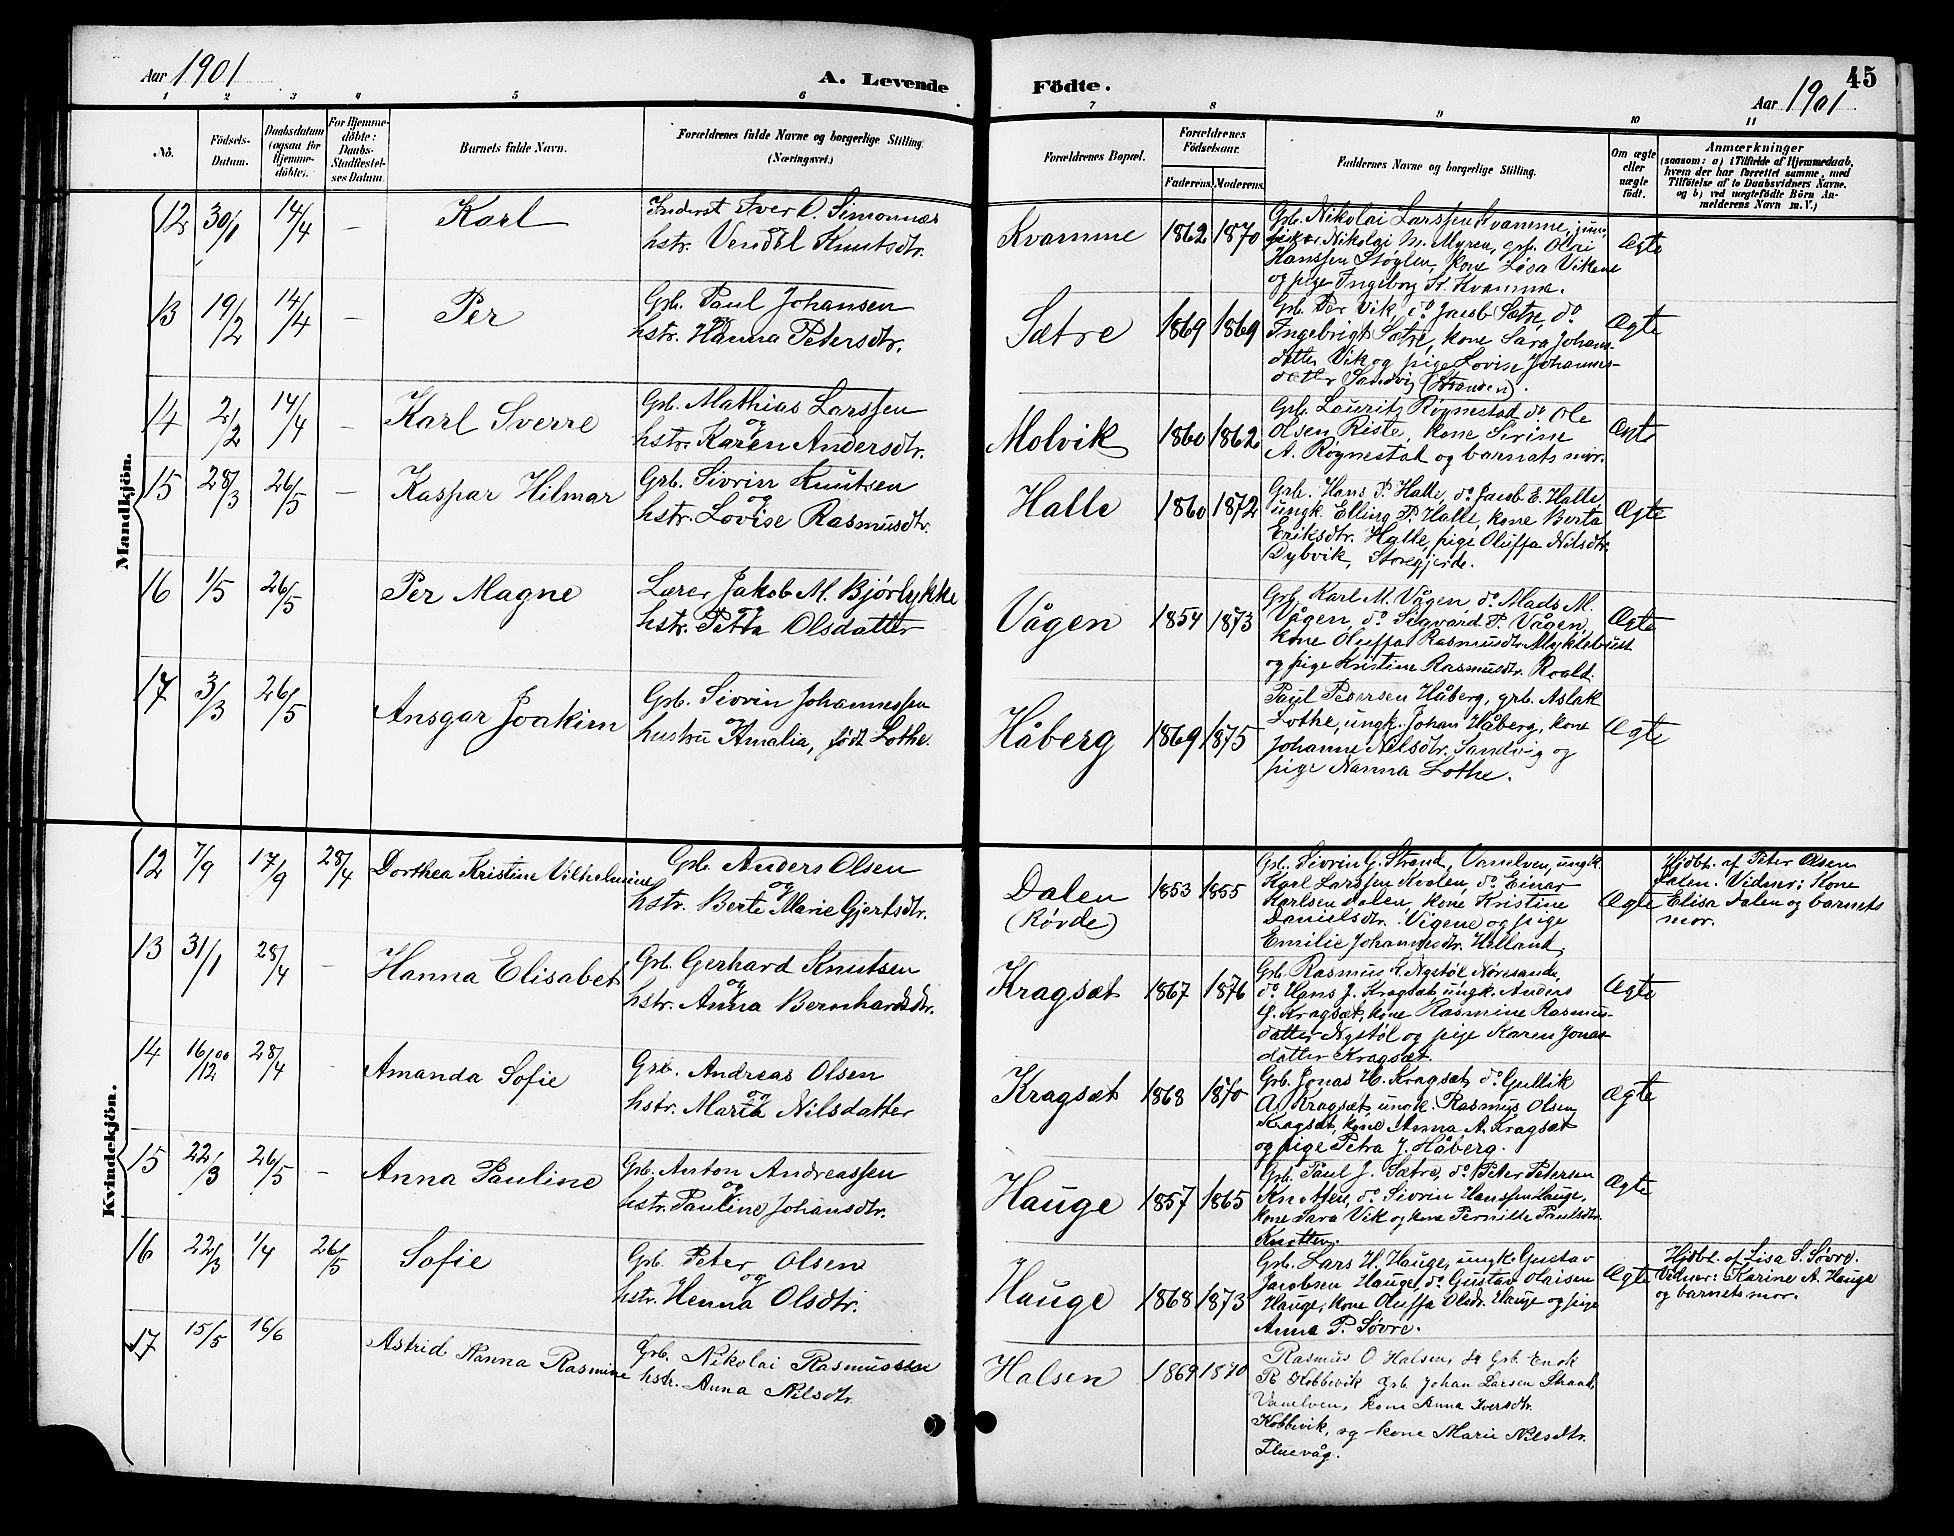 Aar 1901
A. Levende Födte.
45
Aar 1901
1 2 3 4 5 6 7 8 9 10 11
No.
Födsels-
Datum.
Daabsdatum
(ogsaa for
Hjemme-
döbte).
For Hjemme-
döbte:
Daabs-
Stadfæstel-
ses Datum.
Barnets fulde Navn.
Forældrenes fulde Navne og borgerlige Stilling.
(Næringsvei.)
Forældrenes Bopæl.
Forældrenes
Födselsaar.
Faderens. Moderens.
Faddernes Navne og borgerlige Stilling.
Om ægte
eller
uægte
födt.
Anmærkninger
(saasom: a) i Tilfælde af Hjemmedaab,
hvem der har forrettet samme, med
Tilföielse af to Daabsvidners Navne,
og b) ved uægtefödte Börn An-
melderens Navn m.V.)
Mandkjön.
12 30/1 14/4 – Karl
Inderst Iver O. Simonnes
hstr. Vendel Knutsdtr.
Kvamme 1862 1870
Grb. Nikolai Larssen Kvamme, jun.,
Nikolai M. Myren, grb. Olai
Hanssen Støylen, kone Lisa Vikene
og pige Ingeborg K. Kvamme.
Ægte
13 19/2 14/4 – Per
Grb. Paul Johansen
og
hstr. Hanna Petersdtr.
Sætre 1869 1869
Grb. Per Vik, do Jacob Sætre, do
Ingebrigt Sætre, kone Sara Johans-
datter Vik og pige Lovise Johannes-
datter Sandvig (Stranden).
Ægte
14 2/2 14/4 – Karl Sverre
Grb. Mathias Larssen
og
hstr. Karen Andersdtr.
Molvik 1860 1862
Grb. Laurits Røgnestad do Ole
Olsen Riste, kone Sirine
A. Røgnestad og barnets mor.
Ægte
15 28/3 26/5 – Kaspar Hilmar
Grb. Sivrin Knutsen
og
hstr. Lovise Rasmusdtr.
Halle 1860 1872
Grb. Hans P. Halle, do Jacob E. Halle
ungk. Elling P. Halle, kone Berta
Eriksdtr. Halle, pige Oluffa Nilsdtr.
Dybvik, Storegjerde.
Ægte
16 1/5 26/5 Per Magne
Lærer Jakob M. Bjørlykke
og
hstr. Petra Olsdatter
Vågen 1854 1873
Grb. Karl M. Vågen, do Mads M.
Vågen, do Sigvard P. Vågen,
kone Oluffa Rasmusdtr. Myklebust
og pige Kristine Rasmusdtr. Roald.
Ægte
17 3/3 26/5 Ansgar Joakim
Grb. Sivrin Johannessen
og
hustru Amalia, født Lothe.
Håberg 1869 1875
Paul Pedersen Håberg, grb. Aslak
Lothe, ungk. Johan Håberg, kone
Johanne Nilsdtr. Sandvig og
pige Nanna Lothe.
Ægte
Kvindekjön.
12 7/9 17/9 28/4 Dorthea Kristine Vilhelmine
Grb. Anders Olsen
og
hstr. Berte Marie Gjertsdtr.
Dalen
(Rövde)
1853 1855
Grb. Sivrin G. Strand, Vanelven, ungk.
Karl Larssen Kvalen, do Einar
Karlsen Dalen, kone Kristine
Danielsdtr. Vigene og pige
Emilie Johannesdtr. Hilland.
Ægte
Hjdbt. af Peter Olsen
Dalen. Vidner: Kone
Elisa Dalen og barnets
mor.
13 31/1 28/4 – Hanna Elisabet
Grb. Gerhard Knutsen
og
hstr. Anna Bernhardsdtr.
Kragsæt 1867 1876
Grb. Rasmus K. Nystøl Nøresande,
do Hans J. Kragsæt, ungk. Anders
G. Kragsæt, kone Rasmine Rasmus-
datter Nystøl og pige Karen Jonas-
datter Kragsæt.
Ægte
14 16/12 00 28/4 – Amanda Sofie
Grb. Andreas Olsen
og
hstr. Maria Nilsdatter
Kragsæt 1868 1870
Grb. Jonas H. Kragsæt, do Gullik
A. Kragsæt, ungk. Rasmus Olsen
Kragsæt, kone Anna A. Kragsæt
og pige Petra J. Håberg.
Ægte
15 22/3 26/5 – Anna Pauline
Grb. Anton Andreassen
og
hstr. Pauline Johansdtr.
Hauge 1857 1865
Grb. Paul J. Sætre, do Peter Petersen
Knotten, do Sivrin Hanssen Hauge,
kone Sara Vik og kone Pernilde Paulsdtr.
Knotten.
Ægte
16 22/3 1/4 26/5 Sofie
Grb. Peter Olsen
og
hstr. Henna Olsdtr.
Hauge 1868 1873
Grb. Lars H. Hauge, ungk. Gustav
Jacobsen Hauge, do Gustav Olaisen
Hauge, kone Oluffa Olsdr. Hauge og pige
Anna P. Søvre.
Ægte
Hjdbt. af Lisa S. Søvre.
Vidner: Karine A. Hauge
og barnets mor.
17 15/5 16/6 Astrid Nanna Rasmine
Grb. Nikolai Rasmussen
hstr. Anna Nilsdtr.
Halsen 1869 1870
Rasmus O. Halsen, Grb. Enok
R. Kobbevik Grb. Johan Larsen Straad,
Vanelven, kone Anna Iversdtr.
Kobbevik, og kone Marie Nilsdtr.
Tluevåg.